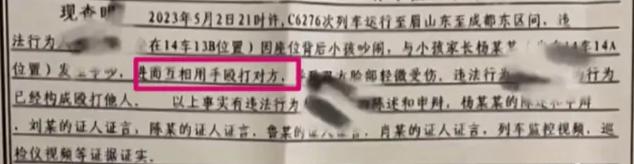 现查明
2023年5月2日21时许,C6276次列车运行至眉山东至成都东区间,违
法行为 在14车13B位置)因座位背后小孩吵闹,与小孩家长杨某 14车14A
位置)发 ,进而互相用手殴打对方, 双方脸部轻微受伤,违法行 的行为
已经构成殴打他人. 以上事实有违法行为 陈述和申辩,杨某某的陈述和申辩
、刘某的证人证言,陈某的证人证言、鲁某 证人证言、肖某的证人证言,列车监控视频,巡
检仪视频等证据证实.